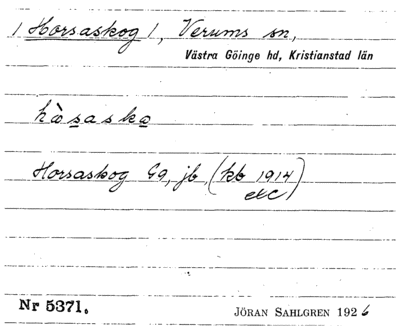 / Horsaskog /, Verums sn,
Västra Göinge hd, Kristianstad län
hàsasko
Horsaskog G9, jb, (kb 1914)
etc
Nr 5371. JÖRAN SAHLGREN 1926